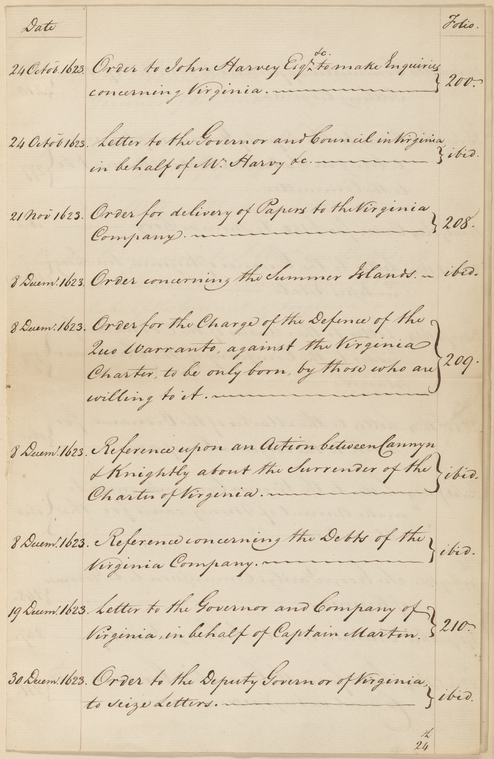 Date Folio.
24 Octob. 1623. Order to John Harvey Esqr. &c. to make Enquiries
concerning Virginia. 200.
24 Octob 1623. Letter to the Governor and Council in Virginia
in behalf of Mr. Harvy &c. ibid.
21 Nov 1623. Order for delivery of Papers to the Virginia
Company. 208.
8 Decemr. 1623. Order concerning the Summer Islands. ibid.
8 Decemr. 1623. Order for the Charge of the Defence of the
Quo Warranto, against the Virginia
Charter, to be only born, by those who are 209.
willing to it.
8 Decemr. 1623. Reference upon an Action between Cannyn
& Knightly about the Surrender of the ibid.
Charter of Virginia.
8 Decemr. 1623. Reference concerning the Debts of the
Virginia Company. ibid.
19 Decemr. 1623. Letter to the Governor and Company of
Virginia, in behalf of Captain Martin. 210.
30 Decemr. 1623. Order to the Deputy Governor of Virginia,
to seize Letters. ibid.
th
24